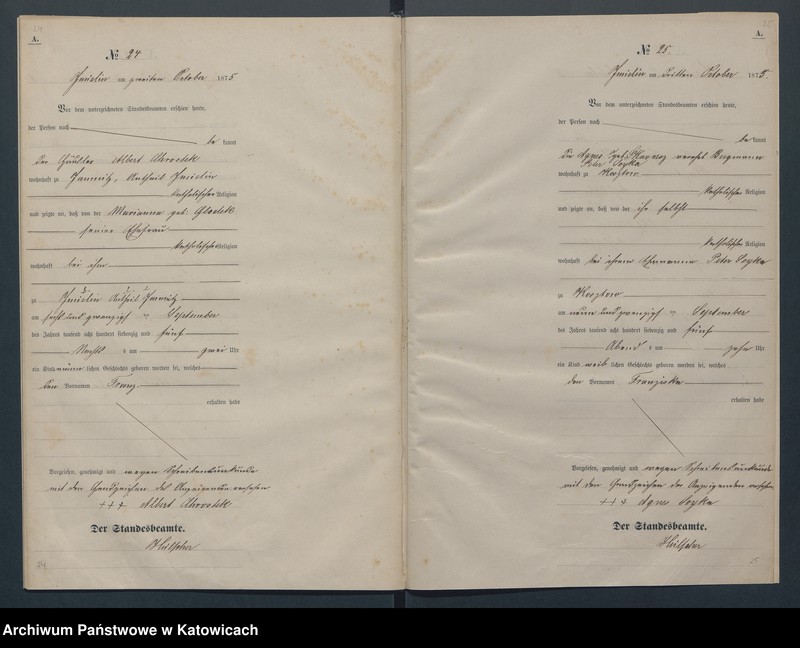 24
A.
№ 24
Imielin am zweiten October 1875
Vor dem unterzeichneten Standesbeamten erschien heute,
der Person nach
be kannt
Der Häusler Albert
wohnhaft zu Jamnitz, Antheil Imielin
katholischer Religion
und zeigte an, daß von der Marianna geb.
seiner Ehefrau
katholischer Religion
wohnhaft bei ihm
zu Imielin Antheil Jamnitz
am sechs und zwanzigsten September
des Jahres tausend acht hundert siebenzig und fünf
Nachts um zwei Uhr
ein Kind männ lichen Geschlechts geboren worden sei, welches
den Vornamen Franz
erhalten habe
Vorgelesen, genehmigt und wegen Schreibensunkunde
mit den Handzeichen des Anzeigenden versehen
+++ Albert
Der Standesbeamte.
24
25
A.
№ 25
Imielin am dritten October 1875.
Vor dem unterzeichneten Standesbeamten erschien heute,
der Person nach
be kannt
Die Agnes verehel Bergmann
Peter Soyka
wohnhaft zu Kosztow
katholischer Religion
und zeigte an, daß von der ihr selbst
katholischer Religion
wohnhaft bei ihrem Ehemanne Peter Soyka
zu Kosztow
am neun und zwanzigst September
des Jahres tausend acht hundert siebenzig und fünf
Abend um zehn Uhr
ein Kind weib lichen Geschlechts geboren worden sei, welches
den Vornamen Franziska
erhalten habe
Vorgelesen, genehmigt und wegen Schreibensunkunde
mit den Handzeichen der Anzeigenden versehen
+++ Agnes Soyka
Der Standesbeamte.
25
Archiwum Państwowe w Katowicach